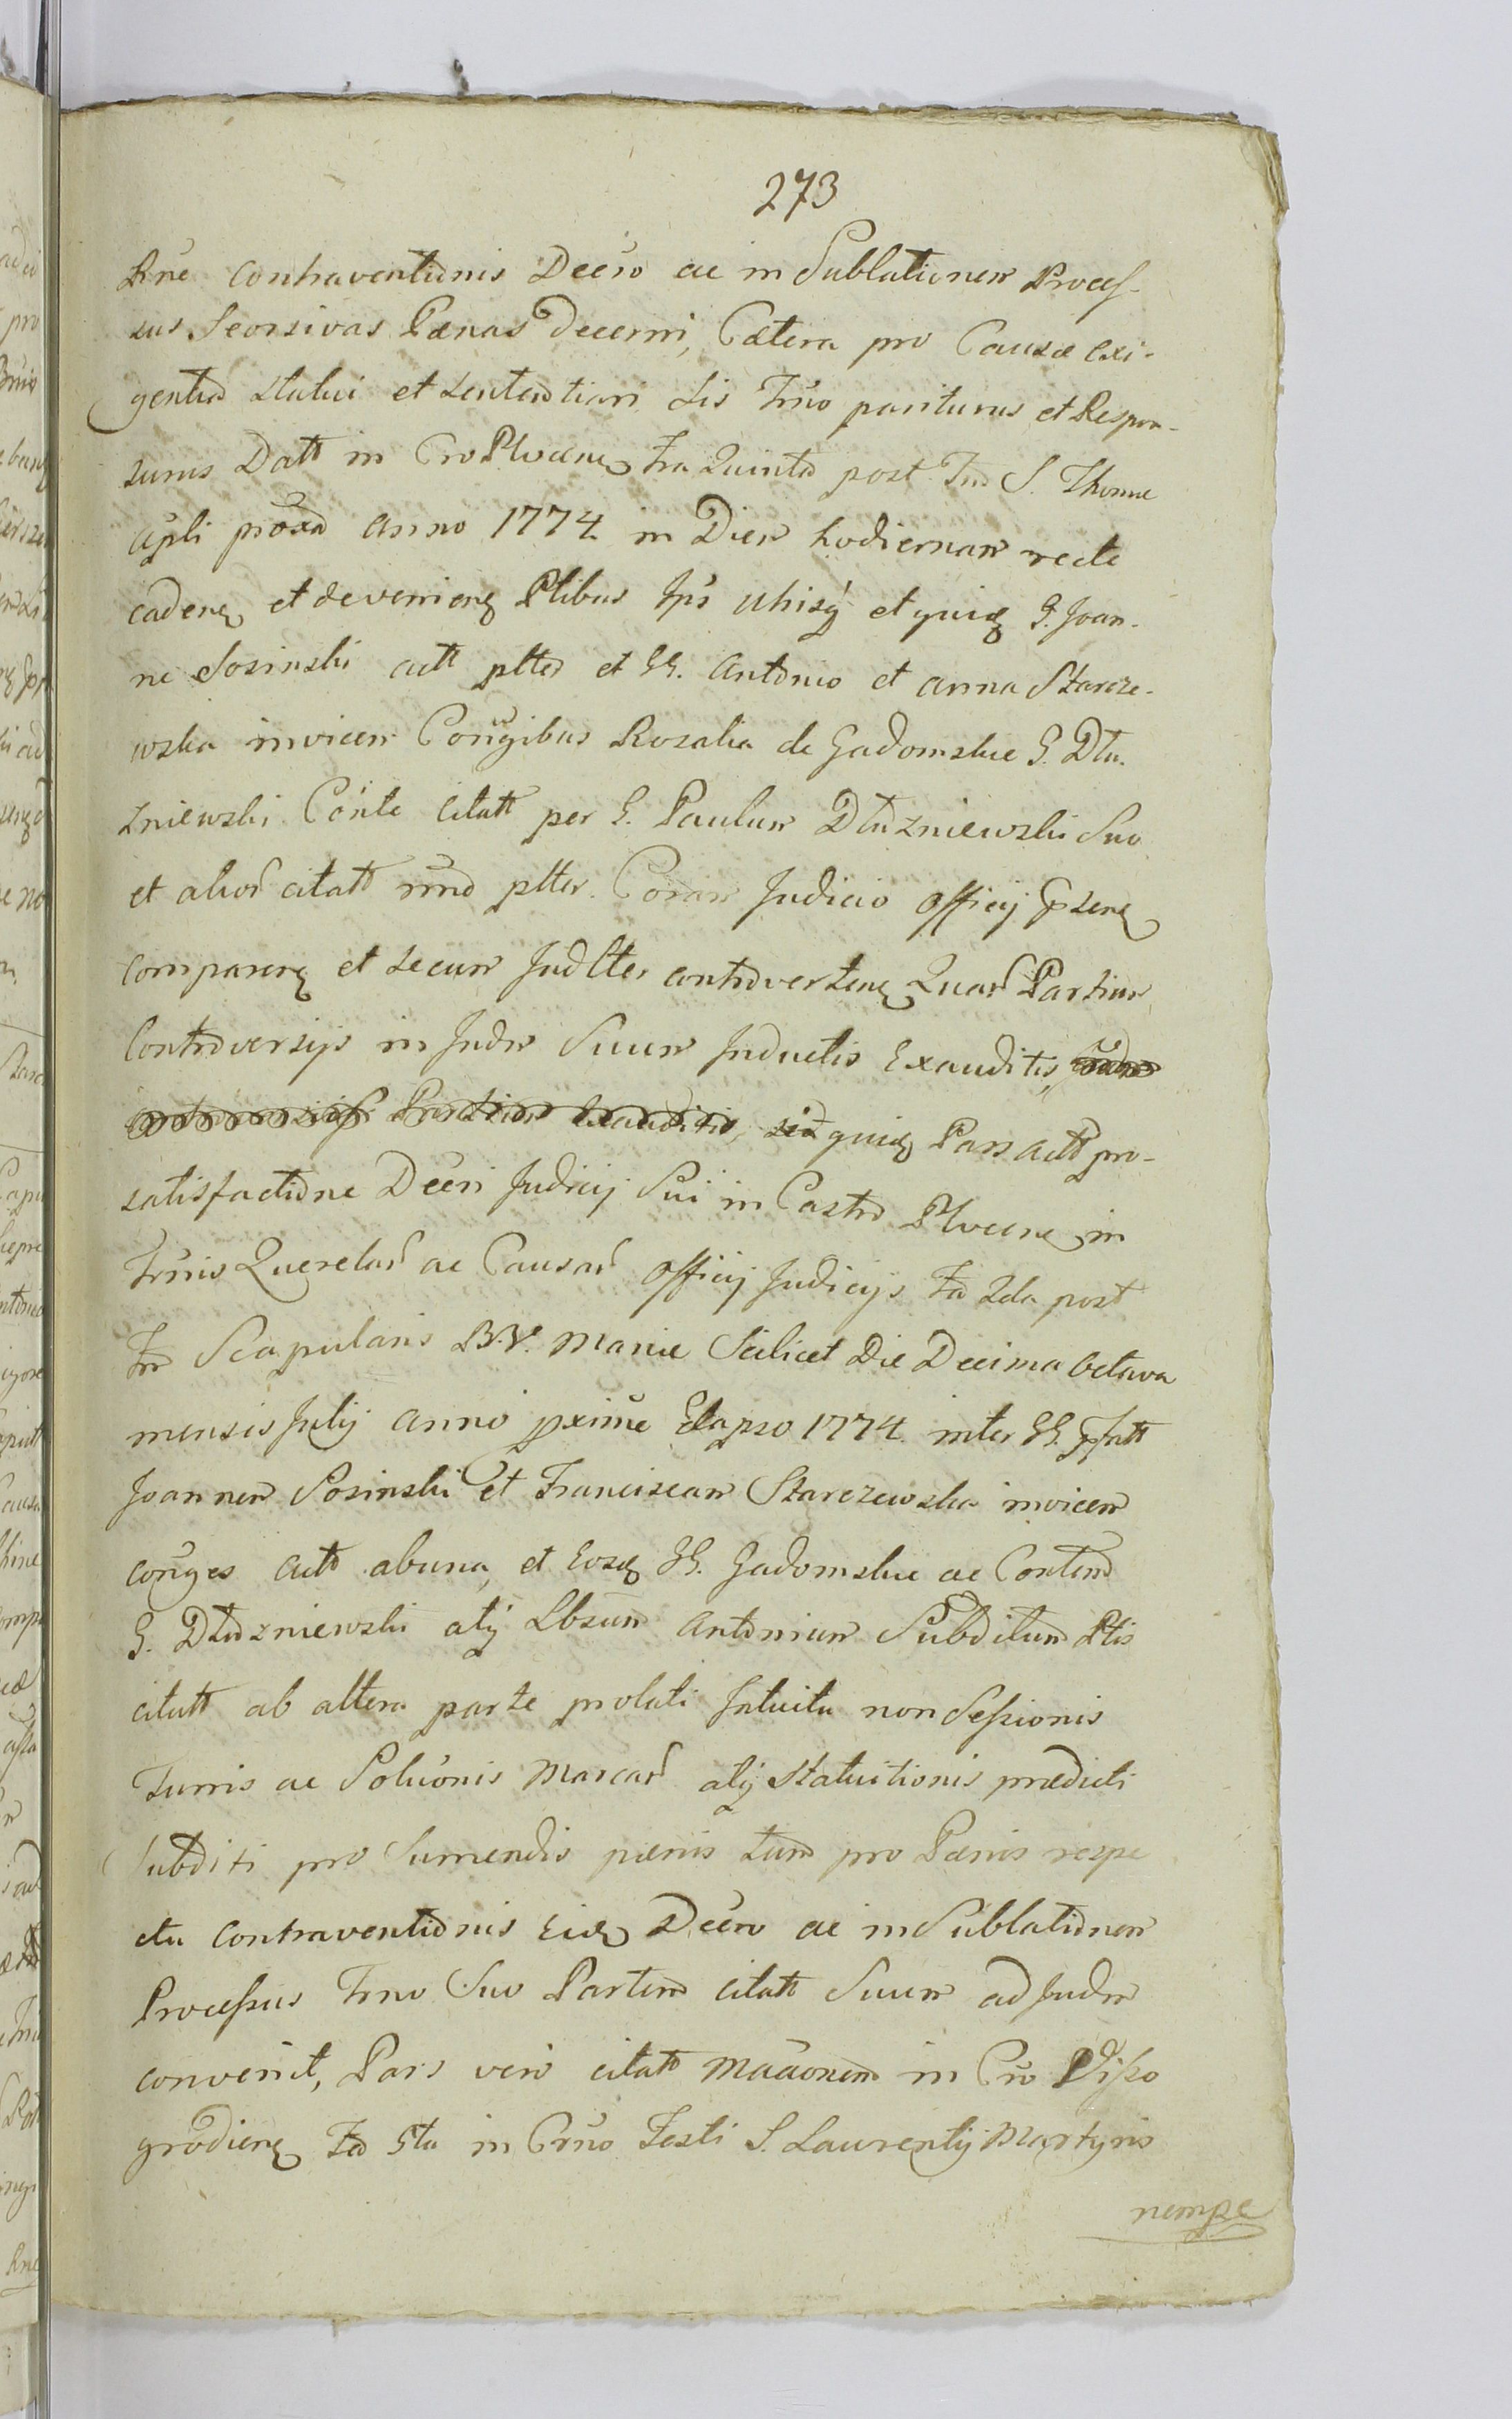 273
Rñe contraventionis Decro ac in Sublationem Proces-
sus Seorsivas Pænas Decerni, Cætera pro Causæ exi-
gentia statui et sententiari Lis Trno pariturus et Respon-
surus Datt in Cro Plocenę Fra Quinta post Ftm S. Thomæ
Apli proxã Anno 1774 in Diem hodiernam recte
cadenę et devenienę Ptibus Ips uhisq et quidę G. Joan-
ne Sosinski actt pltes et GG. Antonio et Anna Starcze-
wska invicem Conũgibus Rozalia de Gadomskie G. Dłu-
żniewski Coñte Citatt per G. Paulum Dłużniewski Suo
et alior citatt nñe plter. Coram Judicio Officij Præsenę
comparenę et secum Judlter controvertenę Quar Partium
Controversijs in Judm Suum Inductis Exauditis,
quidę Pars actt pro
satisfactione Decri Judicij Sui in Castro Plocenę in
Trñis Querelar ac Causar Officij Judicijs Fa 2da post
Ftm Scapularis B.V. Mariæ Scilicet Die Decima Octava
mensis Julij Anno pxime Elapso 1774. inter GG. Præfatt
Joannem Sosinski et Franciscam Starczewska invicem
conũges actt ab una, et Eosdę GG. Gadomskie ac Contem
G. Dłużniewski atq Lbsum Antonium Subditum Ptis
citatt ab altera parte prolati Intuitu non Sessionis
Turris ac Soluõnis Marcar atq Statuitionis prædicti
Subditi pro Sumendis pænis tum pro Pænis respe
ctu contraventionis Eidę Decro ac in Sublationem
Processus Trno Suo Partem citatt Suum ad Judm
convenit, Pars vero citatt Mãaonem in Cro Wisso
grodienę Fa 5ta in Crño Festi S. Laurentij Martyris
nempe